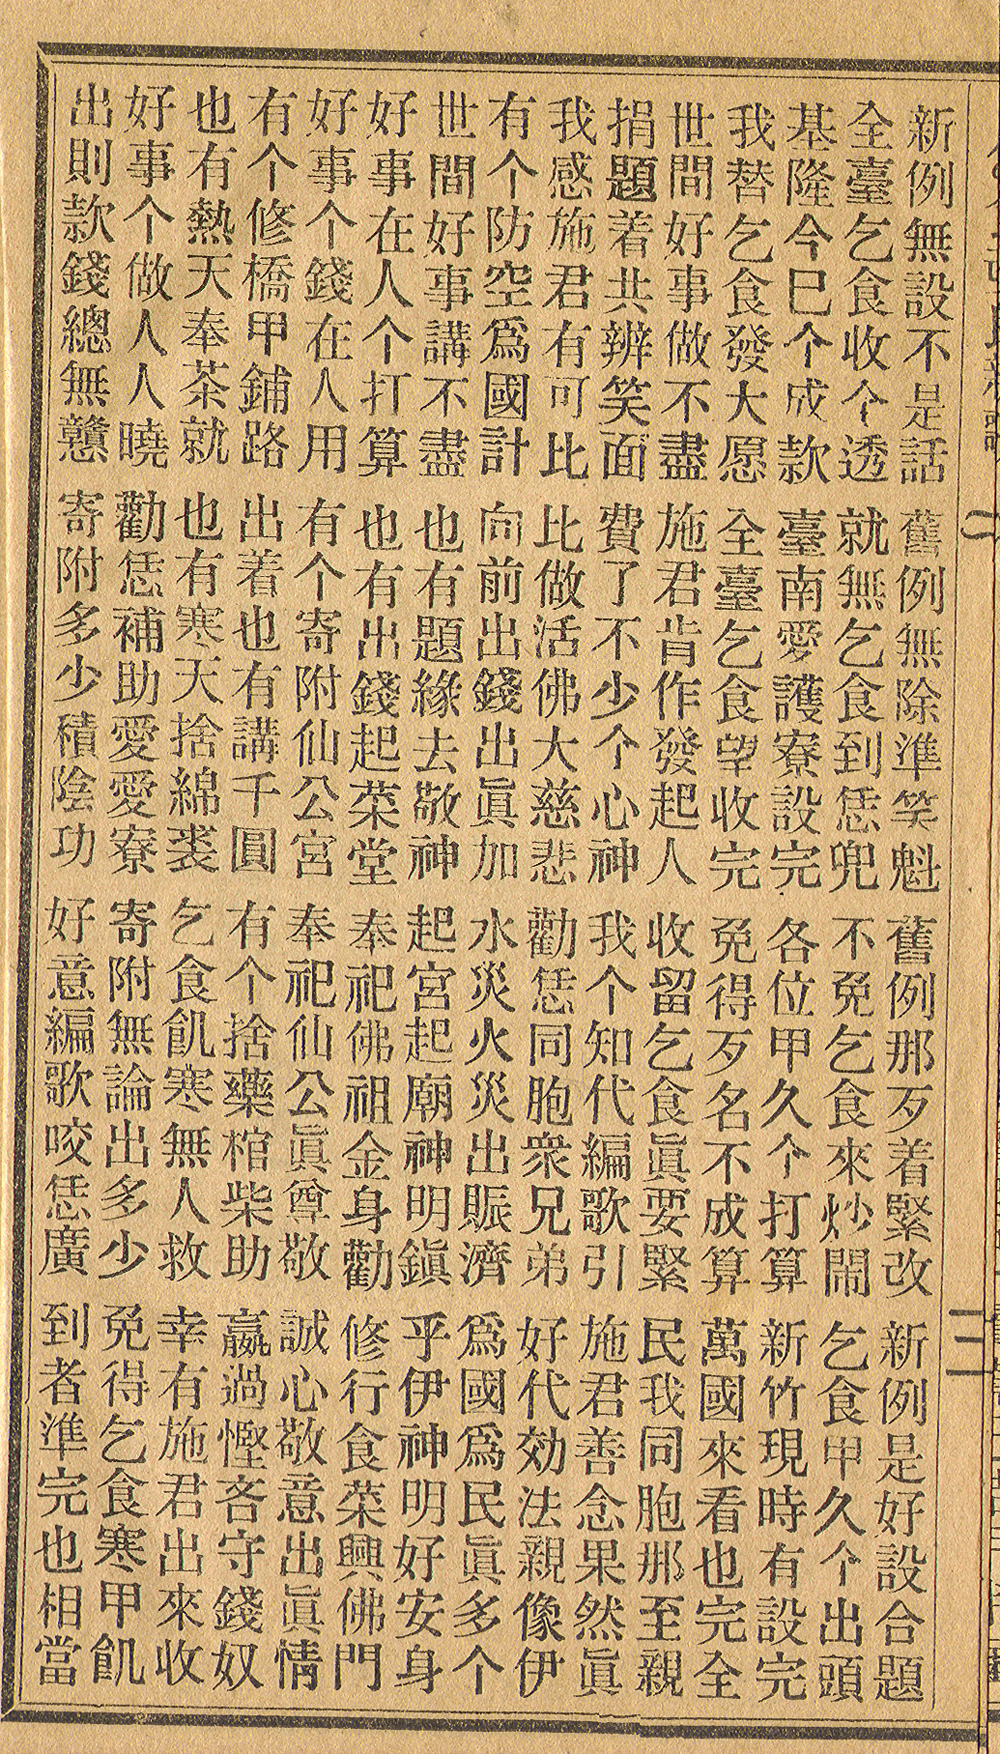 新例無設不是話 舊例無除準笑魁 舊例那歹着緊改 新例是好設合題
全臺乞食收个透 就無乞食到恁兜 不免乞食來炒鬧 乞食甲久个出頭
基隆今巳个成款 臺南愛護寮設完 各位甲久个打算 新竹現時有設完
我替乞食發大愿 全臺乞食望收完 免得歹名不成算 萬國來看也完全
世間好事做不盡 施君肯作發起人 收留乞食眞要緊 民我同胞那至親
捐題着共辨笑面 費了不少个心神 我个知代編歌引 施君善念果然眞
我感施君有可比 比做活佛大慈悲 勸恁同胞衆兄弟 好代効法親像伊
有个防空爲國計 向前出錢出眞加 水災火災出賑濟 爲國爲民眞多个
世間好事講不盡 也有題緣去敬神 起宮起廟神明鎭 乎伊神明好安身
好事在人个打算 也有出錢起菜堂 奉祀佛祖金身勸 修行食菜興佛門
好事个錢在人用 有个寄附仙公宮 奉祀仙公眞尊敬 誠心敬意出眞情
有个修橋甲鋪路 出着也有講千圓 有个捨藥棺柴助 嬴過慳吝守錢奴
也有熱天奉茶就 也有寒天捨綿裘 乞食飢寒無人救 幸有施君出來收
好事个做人人曉 勸恁補助愛愛寮 寄附無論出多少 免得乞食寒甲飢
出則款錢總無戇 寄附多少積陰功 好意編歌咬恁廣 到者準完也相當
三